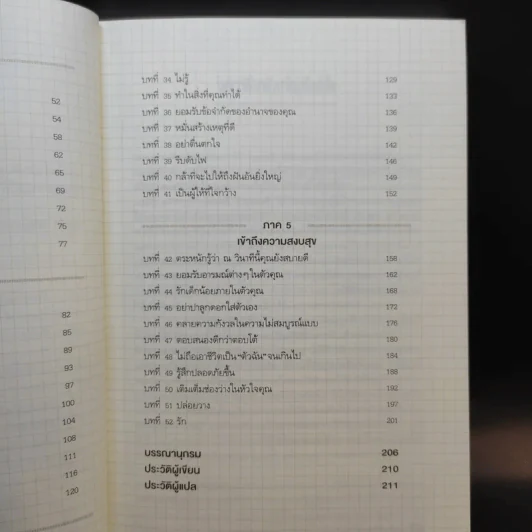 52
54
58
62
65
69
72
75
77
82
85
89
93
97
100
104
108
111
116
120
บทที่ 34 ไม่รู้ 129
บทที่ 35 ทำในสิ่งที่คุณทำได้ 133
บทที่ 36 ยอมรับข้อจำกัดของอำนาจของคุณ 136
บทที่ 37 หมั่นสร้างเหตุที่ดี 139
บทที่ 38 อย่าตื่นตกใจ 142
บทที่ 39 รีบดับไฟ 146
บทที่ 40 กล้าที่จะไปให้ถึงฝันอันยิ่งใหญ่ 149
บทที่ 41 เป็นผู้ให้ที่ใจกว้าง 152
ภาค 5
เข้าถึงความสงบสุข
บทที่ 42 ตระหนักรู้ว่า ณ วินาทีนี้คุณยังสบายดี 158
บทที่ 43 ยอมรับอารมณ์ต่างๆ ในตัวคุณ 162
บทที่ 44 รักเด็กน้อยภายในตัวคุณ 168
บทที่ 45 อย่าปาลูกดอกใส่ตัวเอง 172
บทที่ 46 คลายความกังวลในความไม่สมบูรณ์แบบ 176
บทที่ 47 ตอบสนองดีกว่าตอบโต้ 180
บทที่ 48 ไม่ถือเอาชีวิตเป็น "ตัวฉัน" จนเกินไป 184
บทที่ 49 รู้สึกปลอดภัยขึ้น 188
บทที่ 50 เติมเต็มช่องว่างในหัวใจคุณ 193
บทที่ 51 ปล่อยวาง 197
บทที่ 52 รัก 201
บรรณานุกรม 206
ประวัติผู้เขียน 210
ประวัติผู้แปล 211